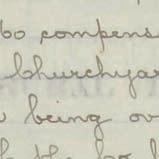 to compens
Churchyar
being ov